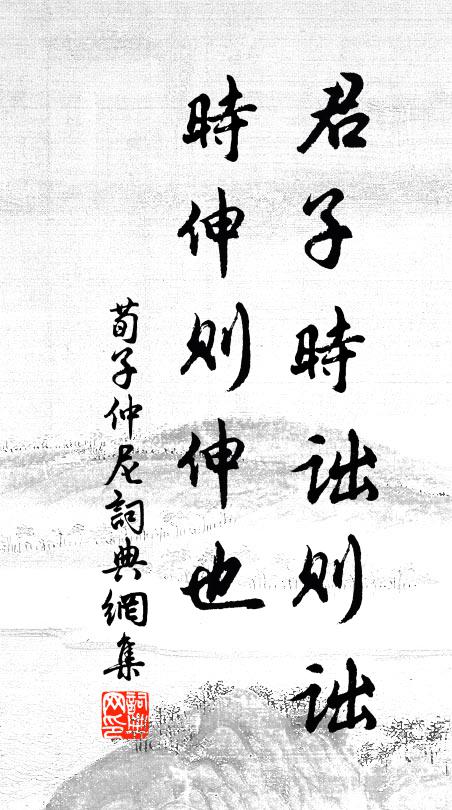 君子時詘則詘
時伸則伸也
荀子仲尼詞典網集